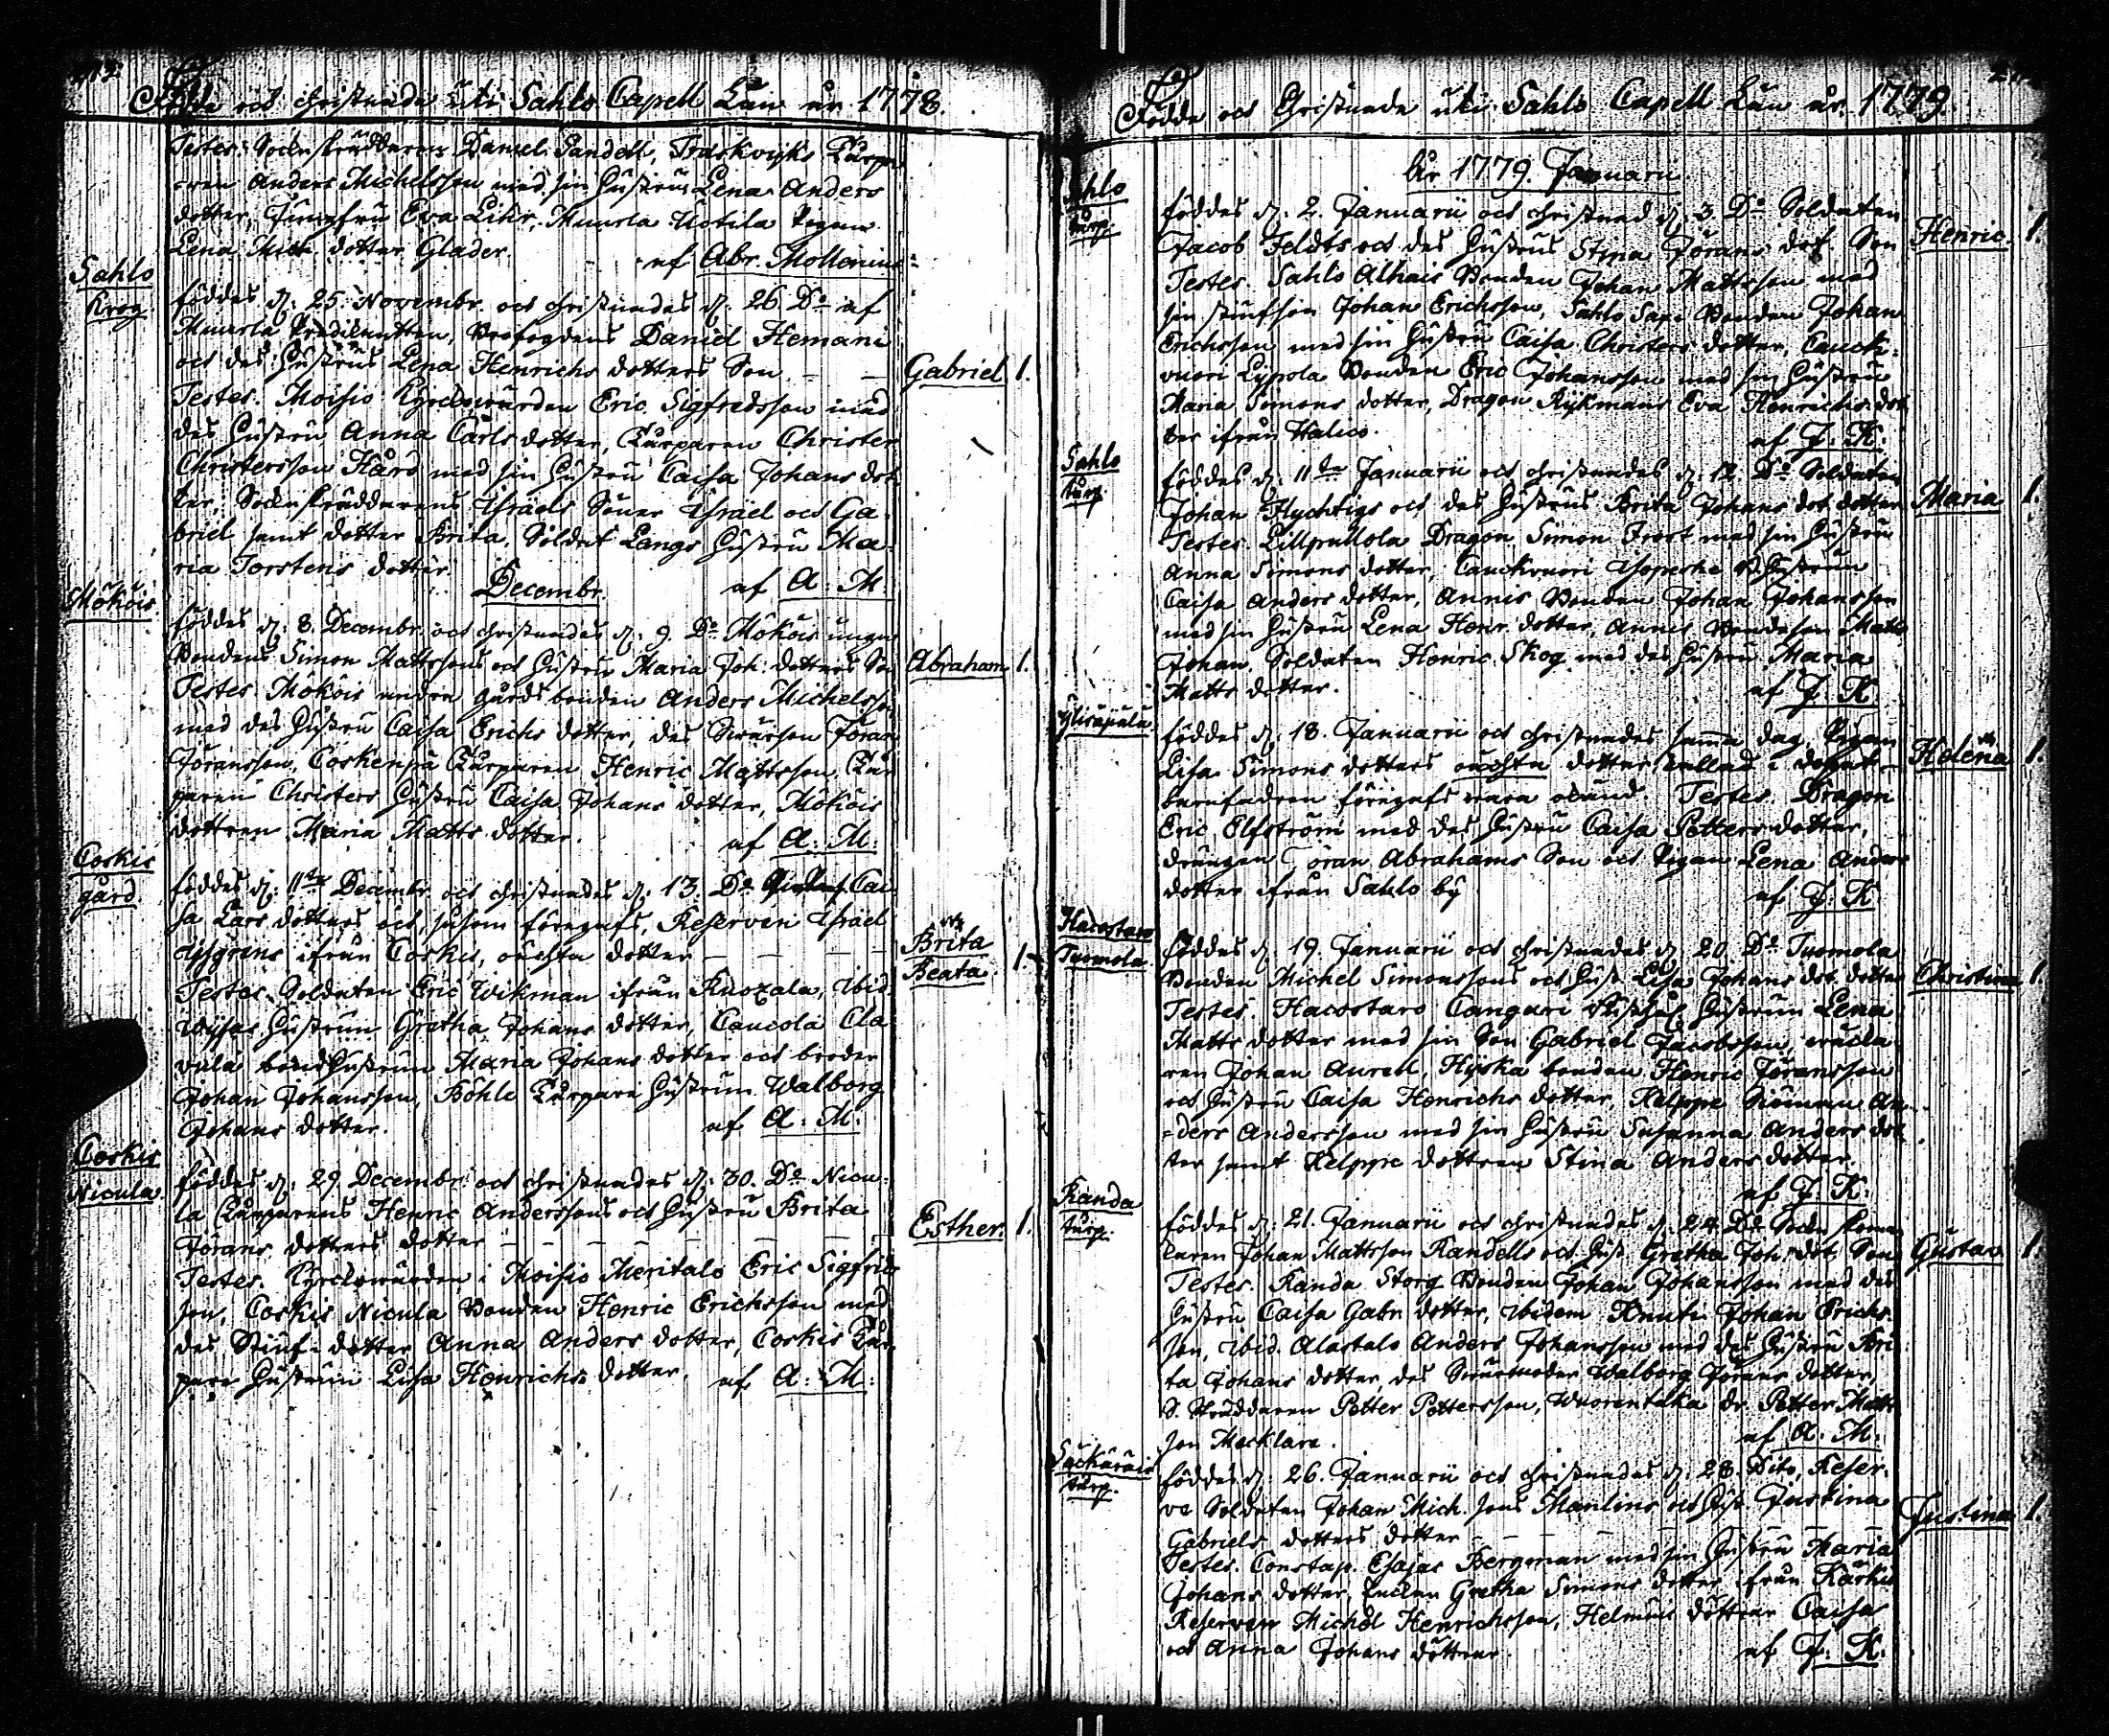 Födde och christnade uti Sahlo Capell Län år 1778.
Testes: Sockn skräddaren Daniel Sandell, Traskvijks Tårpa-
ren Anders Michelsson med sin hustru Lena Anders
dotter, Jungfru Eva Lihr, Muurla Uotila Pigan
Lena Mich. dotter Glader. af Abr. Mollenius
Sahlo
Krog
föddes d: 25. Novembr. och christnades d: 26. Do af
Muurla Prædikanten, Profogdens Daniel Hemani
och des hustrus Lena Henrichs dotters Son
Gabriel 1.
Testes. Moisio Kyrckowärden Eric Sigfredsson med
des hustru Anna Carls dotter, Tårparen Christer
Christersson Håro med sin hustru Caisa Johans dot
ter, Sockn skräddarens Israels Söner Israel och Ga-
briel samt dotter Brita, Soldat Langs hustru Ma-
ria Torstens dotter.
af A: M:
Decembr.
Mököis
föddes d: 8. Decembr. och christnades d: 9. Do Mököis unga
Bondens Simon Mattssons och hustru Maria Joh: dotters Son
Abraham 1.
Testes. Mököis andra gårds bonden Anders Michelsson
med des hustru Caisa Erichs dotter, des Swärson Jöran
Jöransson, Corkenpä Tårparen Henric Mattsson, Tår
paren Christers hustru Caisa Johans dotter, Mököis
dottren Maria Matts dotter.
af A: M:
Coskis
gård.
föddes d: 11te Decembr. och christnades d: 13. Do Cai
sa Lars dotters och, såsom föregafs, Reserven Israel
ifrån Coskis, oächta dotter
Brita
Beata. 1.
Testes. Soldaten Eric Wikman ifrån Ruoxala, Ibid.
hustrun Gretha Johans dotter, Caucola Cla
vula bondhustrun Maria Johans dotter och broder
Johan Johansson, Böhle Tårpare hustrun Walborg
Johans dotter.
af A: M:
Coskis
Nicula
föddes d: 29. Decembr. och christnades d: 30. Do Nicu-
la Tårparens Henric Anderssons och hustru Brita
Jörans dotters dotter
Esther. 1.
Testes. Kyrckowärden i Moisio Meritalo Eric Sigfrids
son, Coskis Nicula Bonden Henric Erichsson med
des Stiuf-dotter Anna Anders dotter, Coskis Tår-
pare hustrun Lisa Henrichs dotter. af A: M:
Födde och Christnade uti Sahlo Capell Län år. 1779.
År 1779. Januari
Sahlo
tårp.
föddes d: 2. Januarii och christnad d: 3. Do Soldaten
Jacob Feldts och des hustrus Stina Jörans dot. Son
Henric. 1.
Testes. Sahlo Alhais Bonden Johan Mattsson med
sin stiufson Johan Erichsson, Sahlo Sapi Bonden Johan
Erichsson med sin hustru Caisa Christers dotter, Cauck-
vuori Lypola Bonden Eric Johansson med sin hustru
Maria Simons dotter, Dragon Rykmans Eva Henrichs dot
ter ifrån Halico.
af J: K:
Sahlo
tårp.
föddes d: 11te Januarii och christnades d: 12. Do Soldaten
Johan Flychtigs och des hustrus Brita Johans dot. dotter
Maria 1.
Testes. Dragon Simon Frost med sin hustru
Anna Simons dotter, Cauckvuori hustrun
Caisa Anders dotter, Annis Bonden Johan Johansson
med sin hustru Lena Henr. dotter, Annis Bondeson Matts
Johan. Soldaten Henric Skog med des hustru Maria
Matts dotter.
af J: K:
föddes d: 18. Januarii och christnades samma dag Pigan
Lisa Simons dotters oächta dotter,
Helena 1.
barnfadren föregafs wara okänd. Testes. Dragon
Eric Elfström med des hustru Caisa Petters dotter,
drängen Jöran Abrahams Son och Pigan Lena Anders
dotter ifrån Sahlo by
af J: K
Hacostaro
Tuomola
föddes d: 19. Januarii och christnades d: 20. Do Tuomola
Bonden Michel Simonssons och hust. Lisa Johans dot. dotter
Christina 1.
Testes. Hacostaro Cangari hustrun Lena
Matts dotter med sin Son Gabriel Jacobsson,
ren Johan Aurell, Hyska bonden Henric Jöransson
och hustru Caisa Henrichs dotter, Kelppe An-
ders Andersson med sin hustru Susanna Anders dot
ter samt Kelppe dottren Stina Anders dotter.
af J: K:
Randa
tårp.
föddes d: 21. Januarii och christnades d: 24. Do Sockn skoma
karen Johan Mattsson Randells och hust. Gretha Joh. dot. Son
Gustav 1.
Testes. Randa Storg. Bonden Johan Johansson med des
hustru Caisa Gabr. dotter, Ibidem Knuti Johan Erichs
son, Ibid. Alastalo Anders Johansson med des hustru Bri
ta Johans dotter, des Swärmoder Walborg Jörans dotter,
S. Skräddaren Petter Pettersson, Wuorentaka Petter Matts
son Mecklare.
af A. M:
tårp.
föddes d: 26. Januarii och christnades d: 28. Dito, Reser-
ve Soldaten Johan Mich. sons Manlins och hust. Justina
Gabriels dotters dotter
Justina 1.
Testes. Constap. Esaias Bergman med sin hustru Maria
Johans dotter, Enckan Gretha Simons dotter från Kärkis
Reserven Michel Henrichsson, Helmuis döttrar Caisa
och Anna Johans döttrar.
af J: K: